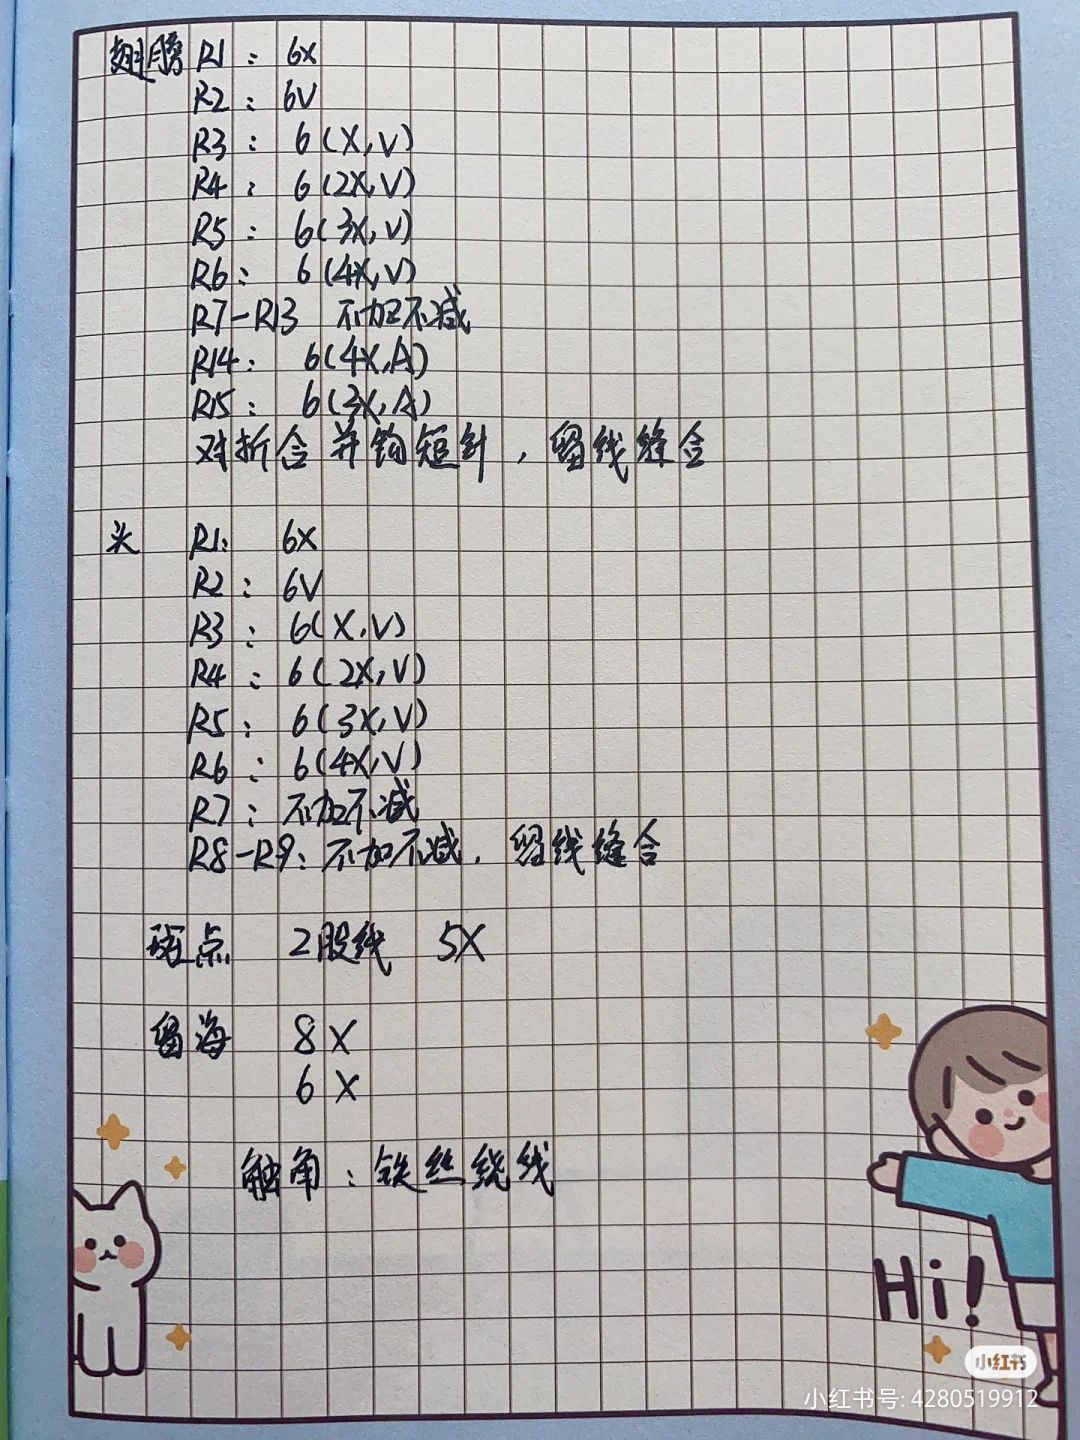 翅膀 R1： 6X
R2： 6V
R3： 6(X,V)
R4： 6(2X,V)
R5： 6(3X,V)
R6： 6(4X,V)
R7-R13 不加不减
R14： 6(4X,A)
R15： 6(3X,A)
对折合并钩短针，留线缝合
头 R1： 6X
R2： 6V
R3： 6(X,V)
R4： 6(2X,V)
R5： 6(3X,V)
R6： 6(4X,V)
R7：不加不减
R8-R9：不加不减，留线缝合
斑点 2股线 5X
留海 8X
6X
触角：铁丝绕线
Hi!
小红书
小红书号: 4280519912